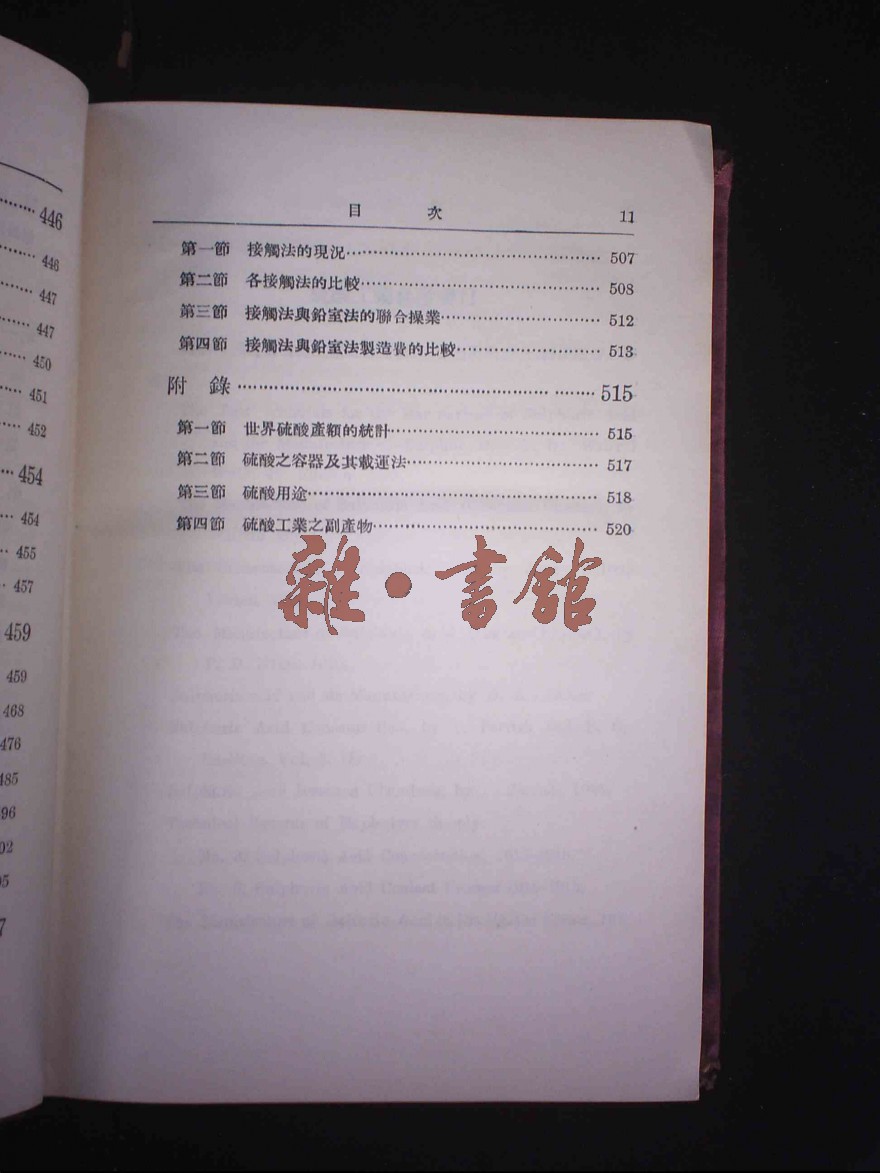 446
446
447
447
450
451
452
454
454
455
457
459
459
468
476
485
目 次 11
第一節 接觸法的現況 507
第二節 各接觸法的比較 508
第三節 接觸法與鉛室法的聯合操業 512
第四節 接觸法與鉛室法製造費的比較 513
附錄 515
第一節 世界硫酸產額的統計 515
第二節 硫酸之容器及其載運法 517
第三節 硫酸用途 518
第四節 硫酸工業之副產物 520
雜·書館